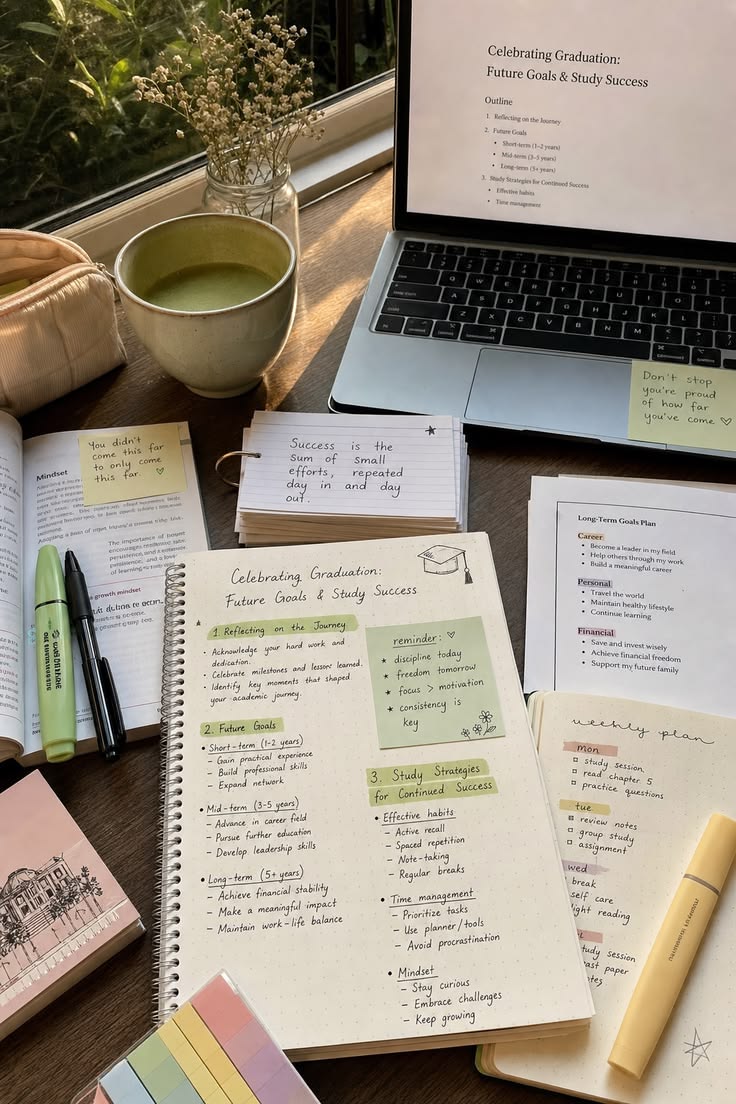 Celebrating Graduation:
Future Goals & Study Success
Outline
1. Reflecting on the Journey
2. Future Goals
• Short-term (1–2 years)
• Mid-term (3–5 years)
• Long-term (5+ years)
3. Study Strategies for Continued Success
• Effective habits
• Time management
Don't stop
you're proud
of how far
you've come ♡
You didn't
come this far
to only come
this far. ♡
Mindset
Success is the
sum of small
efforts, repeated
day in and day
out.
Long-Term Goals Plan
Career
• Become a leader in my field
• Help others through my work
• Build a meaningful career
Personal
• Travel the world
• Maintain healthy lifestyle
• Continue learning
Financial
• Save and invest wisely
• Achieve financial freedom
• Support my future family
Celebrating Graduation:
Future Goals & Study Success
1. Reflecting on the Journey
• Acknowledge your hard work and
dedication.
• Celebrate milestones and lessons learned.
• Identify key moments that shaped
your academic journey.
reminder: ♡
★ discipline today
★ freedom tomorrow
★ focus > motivation
★ consistency is
key
2. Future Goals
• Short-term (1-2 years)
– Gain practical experience
– Build professional skills
– Expand network
• Mid-term (3-5 years)
– Advance in career field
– Pursue further education
– Develop leadership skills
• Long-term (5+ years)
– Achieve financial stability
– Make a meaningful impact
– Maintain work-life balance
3. Study Strategies
for Continued Success
• Effective habits
– Active recall
– Spaced repetition
– Note-taking
– Regular breaks
• Time management
– Prioritize tasks
– Use planner/tools
– Avoid procrastination
• Mindset
– Stay curious
– Embrace challenges
– Keep growing
weekly plan
mon
□ study session
□ read chapter 5
□ practice questions
tue
□ review notes
□ group study
□ assignment
wed
break
self care
light reading
study session
past paper
notes